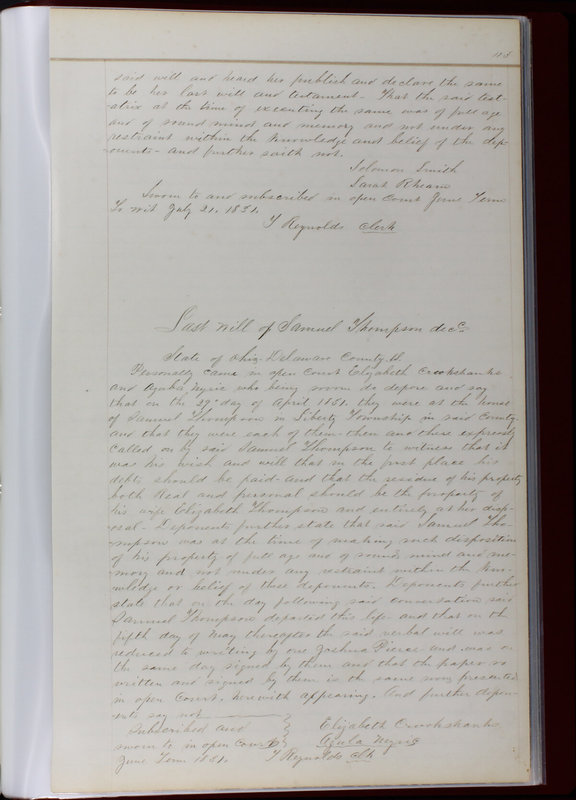 said will and heard her publish and declare the same
to be her last will and testament. That the said test-
atrix at the time of executing the same was of full age
and of sound mind and memory and not under any
restraint within the knowledge and belief of the depo-
nents - and further saith not.
Solomon Smith
Sarah Rheam
Sworn to and subscribed in open Court June Term
To wit July 21, 1851.
T Reynolds Clerk
Last Will of Samuel Thompson decd
State of Ohio Delaware County, ss.
Personally came in open Court Elizabeth Crookshanks
and Azuba Myric who being sworn do depose and say
that on the 29th day of April 1851. they were at the house
of Samuel Thompson in Liberty Township in said County
and that they were each of them then and there expressly
called on by said Samuel Thompson to witness that it
was his wish and will that in the first place his
debts should be paid - and that the residue of his property
both Real and personal should be the property of
his wife Elizabeth Thompson and entirely at her disp-
osal - Deponents further state that said Samuel Tho-
mpson was at the time of making such disposition
of his property of full age and of sound mind and me-
mory and not under any restraint within the know-
wledge or belief of these deponents. Deponents further
state that on the day following said conversation said
Samuel Thompson departed this life - and that on the
fifth day of May thereafter the said verbal will was
reduced to writing by one Joshua Pierce and was on
the same day signed by them and that the paper so
written and signed by them is the same now presented
in open Court, herewith appearing. And further depon-
ents say not
Subscribed and Elizabeth Crookshanks
sworn to in open Court Azula Myric
June Term 1851. T Reynolds Clk